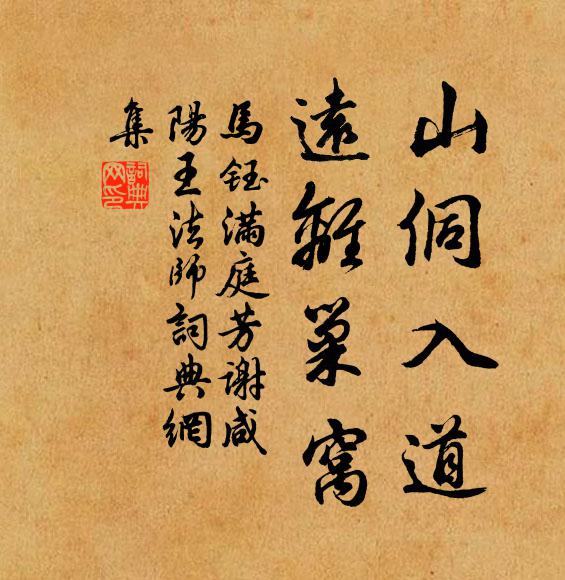 山侗入道
遠離巢窩
馬鈺滿庭芳謝咸
陽王法師詞典網
集
詞典
网印